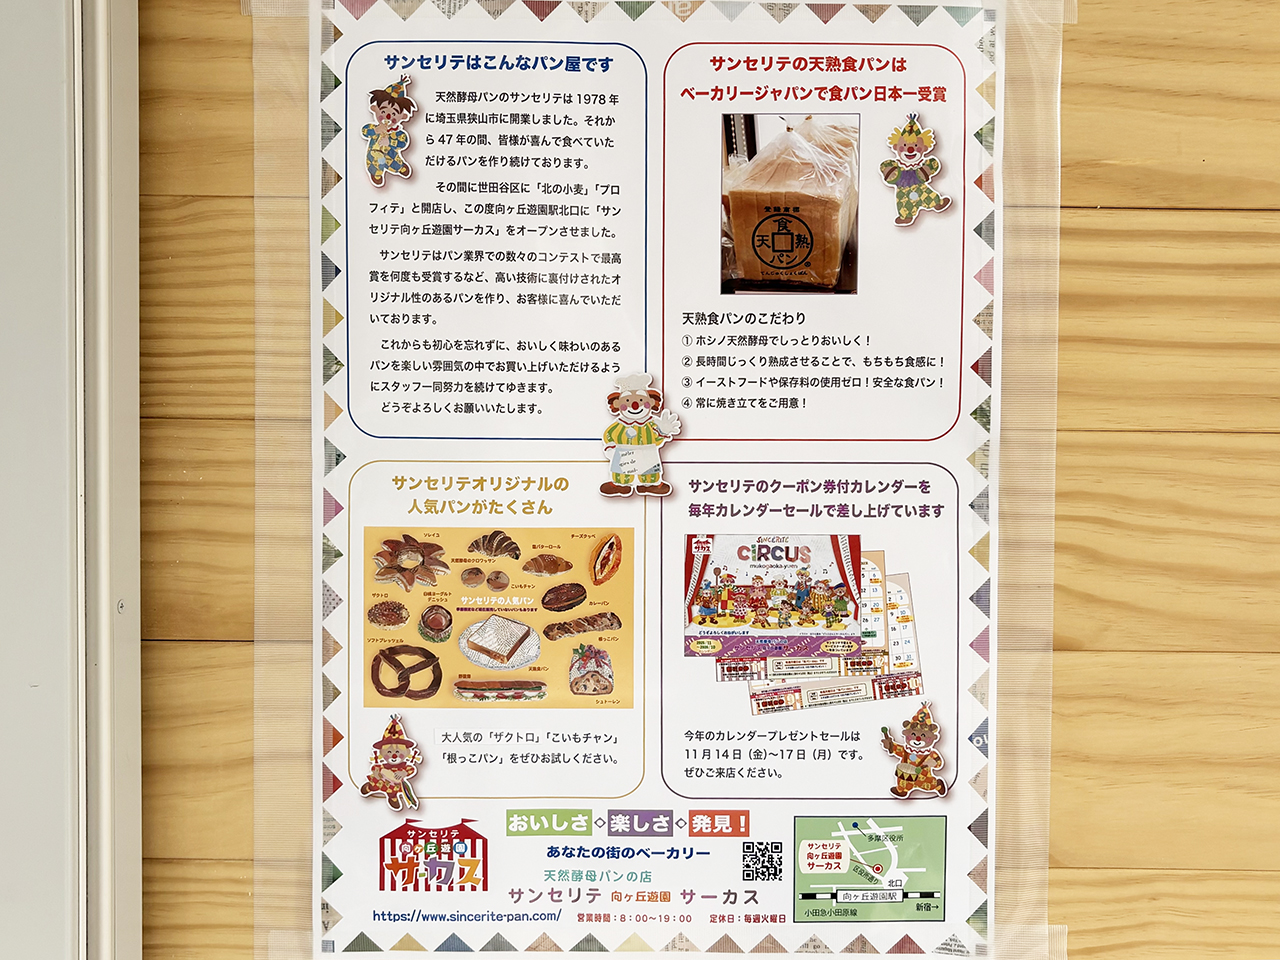 サンセリテはこんなパン屋です
天然酵母パンのサンセリテは1978年
に埼玉県狭山市に開業しました。それか
ら47年の間、皆様が喜んで食べていた
だけるパンを作り続けております。
その間に世田谷区に「北の小麦」「プロ
フィテ」と開店し、この度向ヶ丘遊園駅北口に「サン
セリテ向ヶ丘遊園サーカス」をオープンさせました。
サンセリテはパン業界での数々のコンテストで最高
賞を何度も受賞するなど、高い技術に裏付けされたオ
リジナル性のあるパンを作り、お客様に喜んでいただ
いております。
これからも初心を忘れずに、おいしく味わいのある
パンを楽しい雰囲気の中でお買い上げいただけるよう
にスタッフ一同努力を続けてゆきます。
どうぞよろしくお願いいたします。
サンセリテの天熟食パンは
ベーカリージャパンで食パン日本一受賞
食
天 熟
パン
てんじゅくしょくぱん
天熟食パンのこだわり
① ホシノ天然酵母でしっとりおいしく！
② 長時間じっくり熟成させることで、もちもち食感に！
③ イーストフードや保存料の使用ゼロ！安全な食パン！
④ 常に焼き立てをご用意！
サンセリテオリジナルの
人気パンがたくさん
ソレイユ
天然酵母のクロワッサン
塩バターロール
チーズクッペ
ザクトロ
白桃ヨーグルト
デニッシュ
こいもチャン
カレーパン
サンセリテの人気パン
ソフトプレッツェル
根っこパン
天熟食パン
シュトーレン
大人気の「ザクトロ」「こいもチャン」
「根っこパン」をぜひお試しください。
サンセリテのクーポン券付カレンダーを
毎年カレンダーセールで差し上げています
サーカス
SINCERITE
CIRCUS
mukogaoka-yuen
どうぞよろしくおねがいします
今年のカレンダープレゼントセールは
11月14日（金）〜17日（月）です。
ぜひご来店ください。
サンセリテ
向ヶ丘遊園
サーカス
おいしさ◇楽しさ◇発見！
あなたの街のベーカリー
天然酵母パンの店
サンセリテ 向ヶ丘遊園 サーカス
https://www.sincerite-pan.com/
営業時間：8：00〜19：00 定休日：毎週火曜日
多摩区役所
サンセリテ
向ヶ丘遊園
サーカス
区役所通り
北口
向ヶ丘遊園駅
小田急小田原線
新宿→